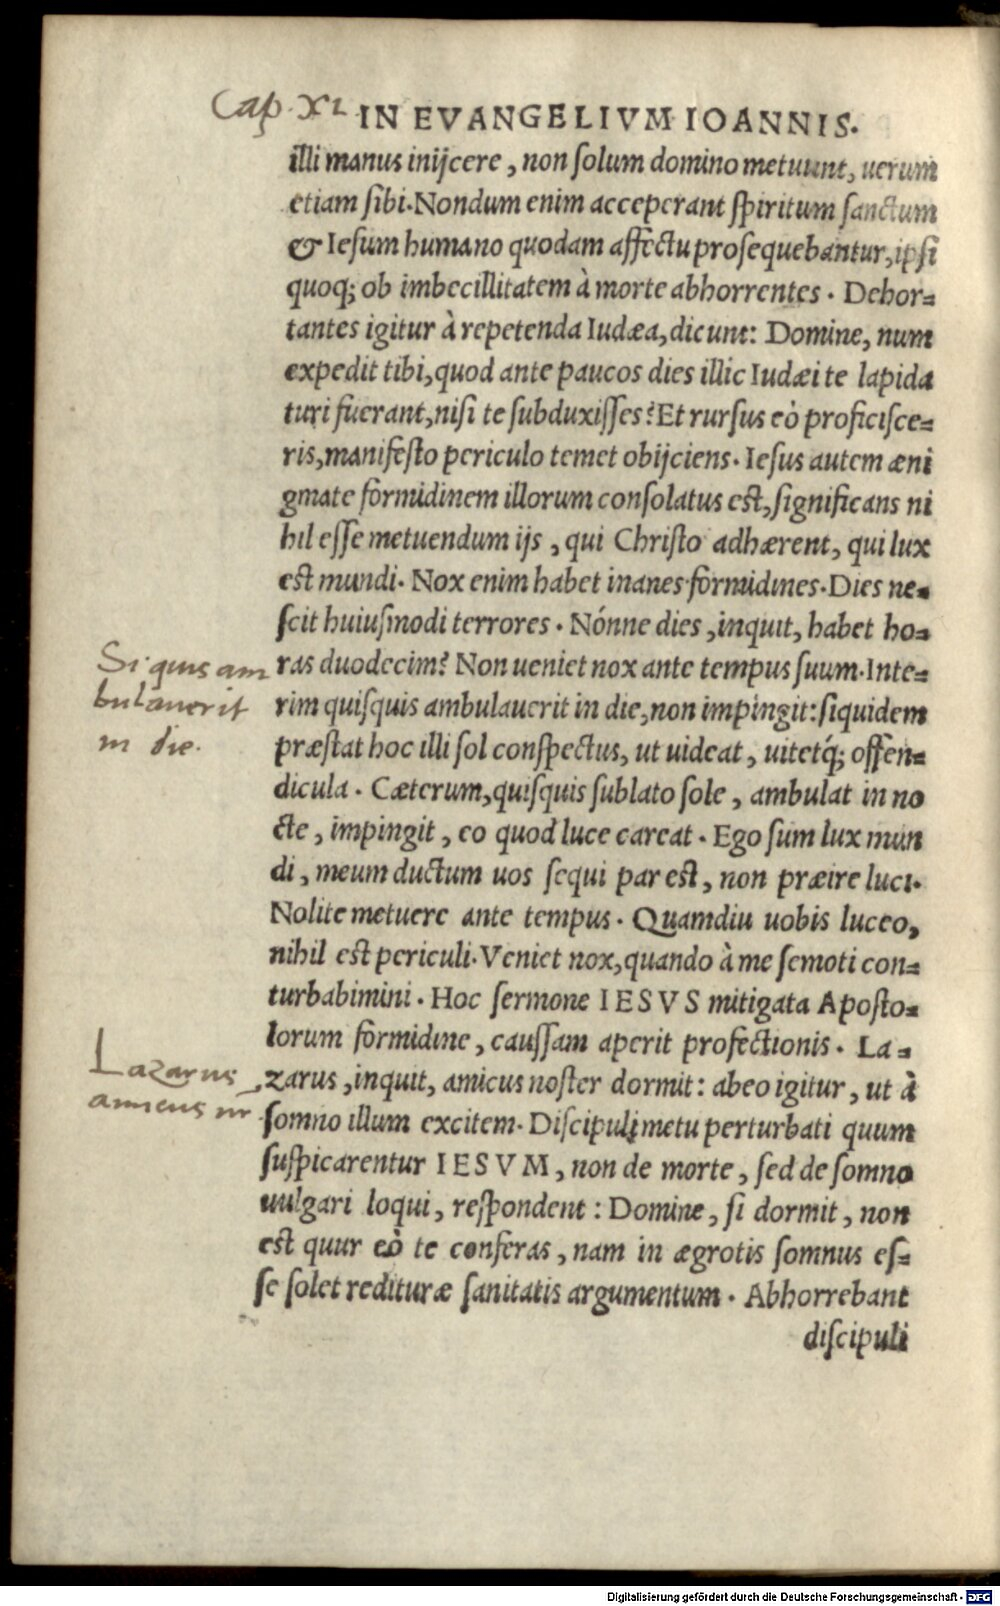 Cap. XI
IN EVANGELIVM IOANNIS.
illi manus inijcere, non ſolum domino metuunt, uerum
etiam ſibi. Nondum enim acceperant ſpiritum ſanctum
& Ieſum humano quodam affectu proſequebantur, ipſi
quoq; ob imbecillitatem à morte abhorrentes. Dehor=
tantes igitur à repetenda Iudæa, dicunt: Domine, num
expedit tibi, quod ante paucos dies illic Iudæi te lapida
turi fuerant, niſi te ſubduxiſſes? Et rurſus eò proficiſce=
ris, manifeſto periculo temet obijciens. Ieſus autem æni
gmate formidinem illorum conſolatus eſt, ſignificans ni
hil eſſe metuendum ijs, qui Chriſto adhærent, qui lux
eſt mundi. Nox enim habet inanes formidines. Dies ne=
ſcit huiuſmodi terrores. Nónne dies, inquit, habet ho=
Si quis am
ras duodecim? Non ueniet nox ante tempus ſuum. Inte=
bulauerit
rim quiſquis ambulauerit in die, non impingit: ſiquidem
in die.
præſtat hoc illi ſol conſpectus, ut uideat, uitetq́; offen=
dicula. Cæterum, quiſquis ſublato ſole, ambulat in no
cte, impingit, eo quod luce careat. Ego ſum lux mun
di, meum ductum uos ſequi par eſt, non præire luci.
Nolite metuere ante tempus. Quamdiu uobis luceo,
nihil eſt periculi. Veniet nox, quando à me ſemoti con=
turbabimini. Hoc ſermone IESVS mitigata Apoſto=
lorum formidine, cauſſam aperit profectionis. La=
Lazarus
zarus, inquit, amicus noſter dormit: abeo igitur, ut à
amicus nr
ſomno illum excitem. Diſcipuli metu perturbati quum
ſuſpicarentur IESVM, non de morte, ſed de ſomno
uulgari loqui, reſpondent: Domine, ſi dormit, non
eſt quur eò te conferas, nam in ægrotis ſomnus eſ=
ſe ſolet redituræ ſanitatis argumentum. Abhorrebant
diſcipuli
Digitalisierung gefördert durch die Deutsche Forschungsgemeinschaft - DFG